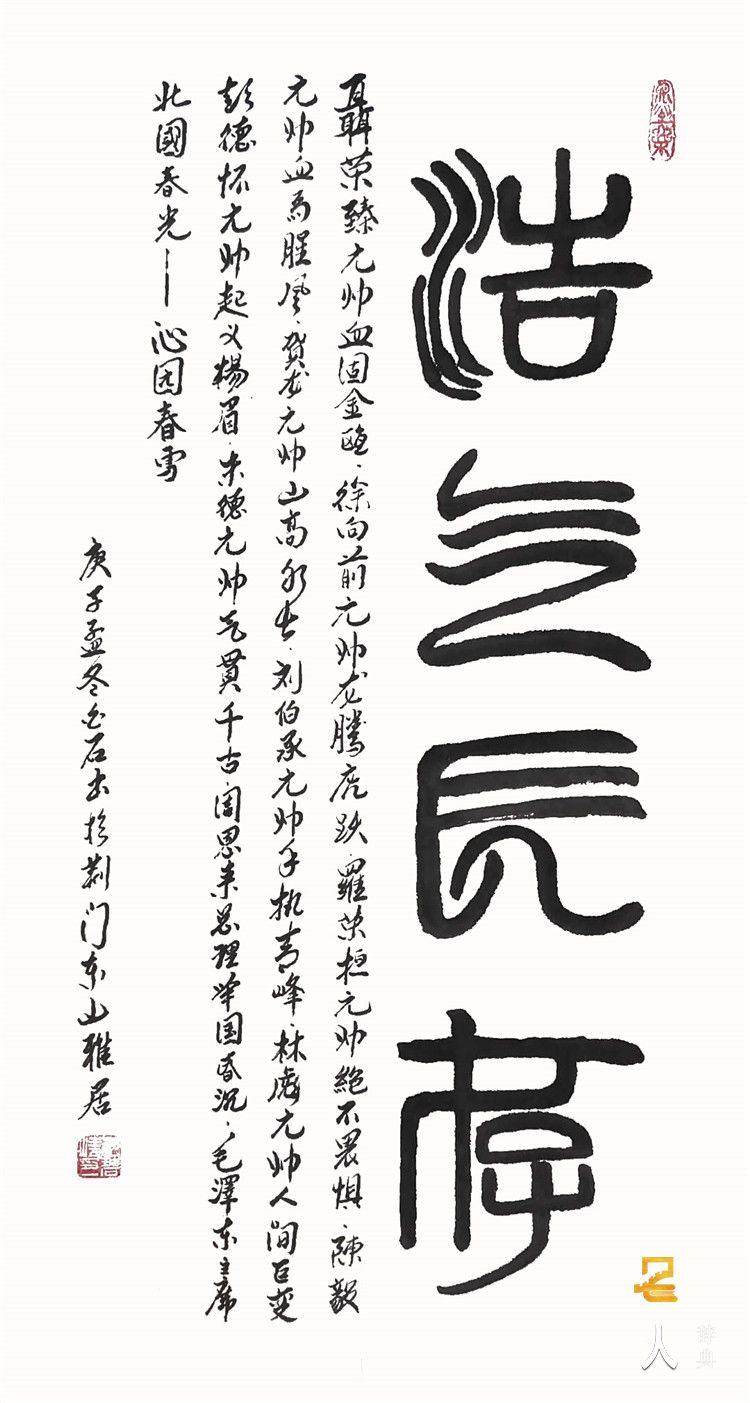 浩气長存
聶荣臻元帅血固金瓯、徐向前元帅龙腾虎跃、羅荣桓元帅絶不畏惧、陳毅
元帅血马腥风、贺龙元帅山高水长、刘伯承元帅手执青峰、林彪元帅人间巨变
彭德怀元帅起义楊眉、朱德元帅气贯千古、周恩来总理举国昏沉、毛澤东主席
北國春光——沁园春雪
庚子孟冬白石书於荆门东山雅居
名人辞典